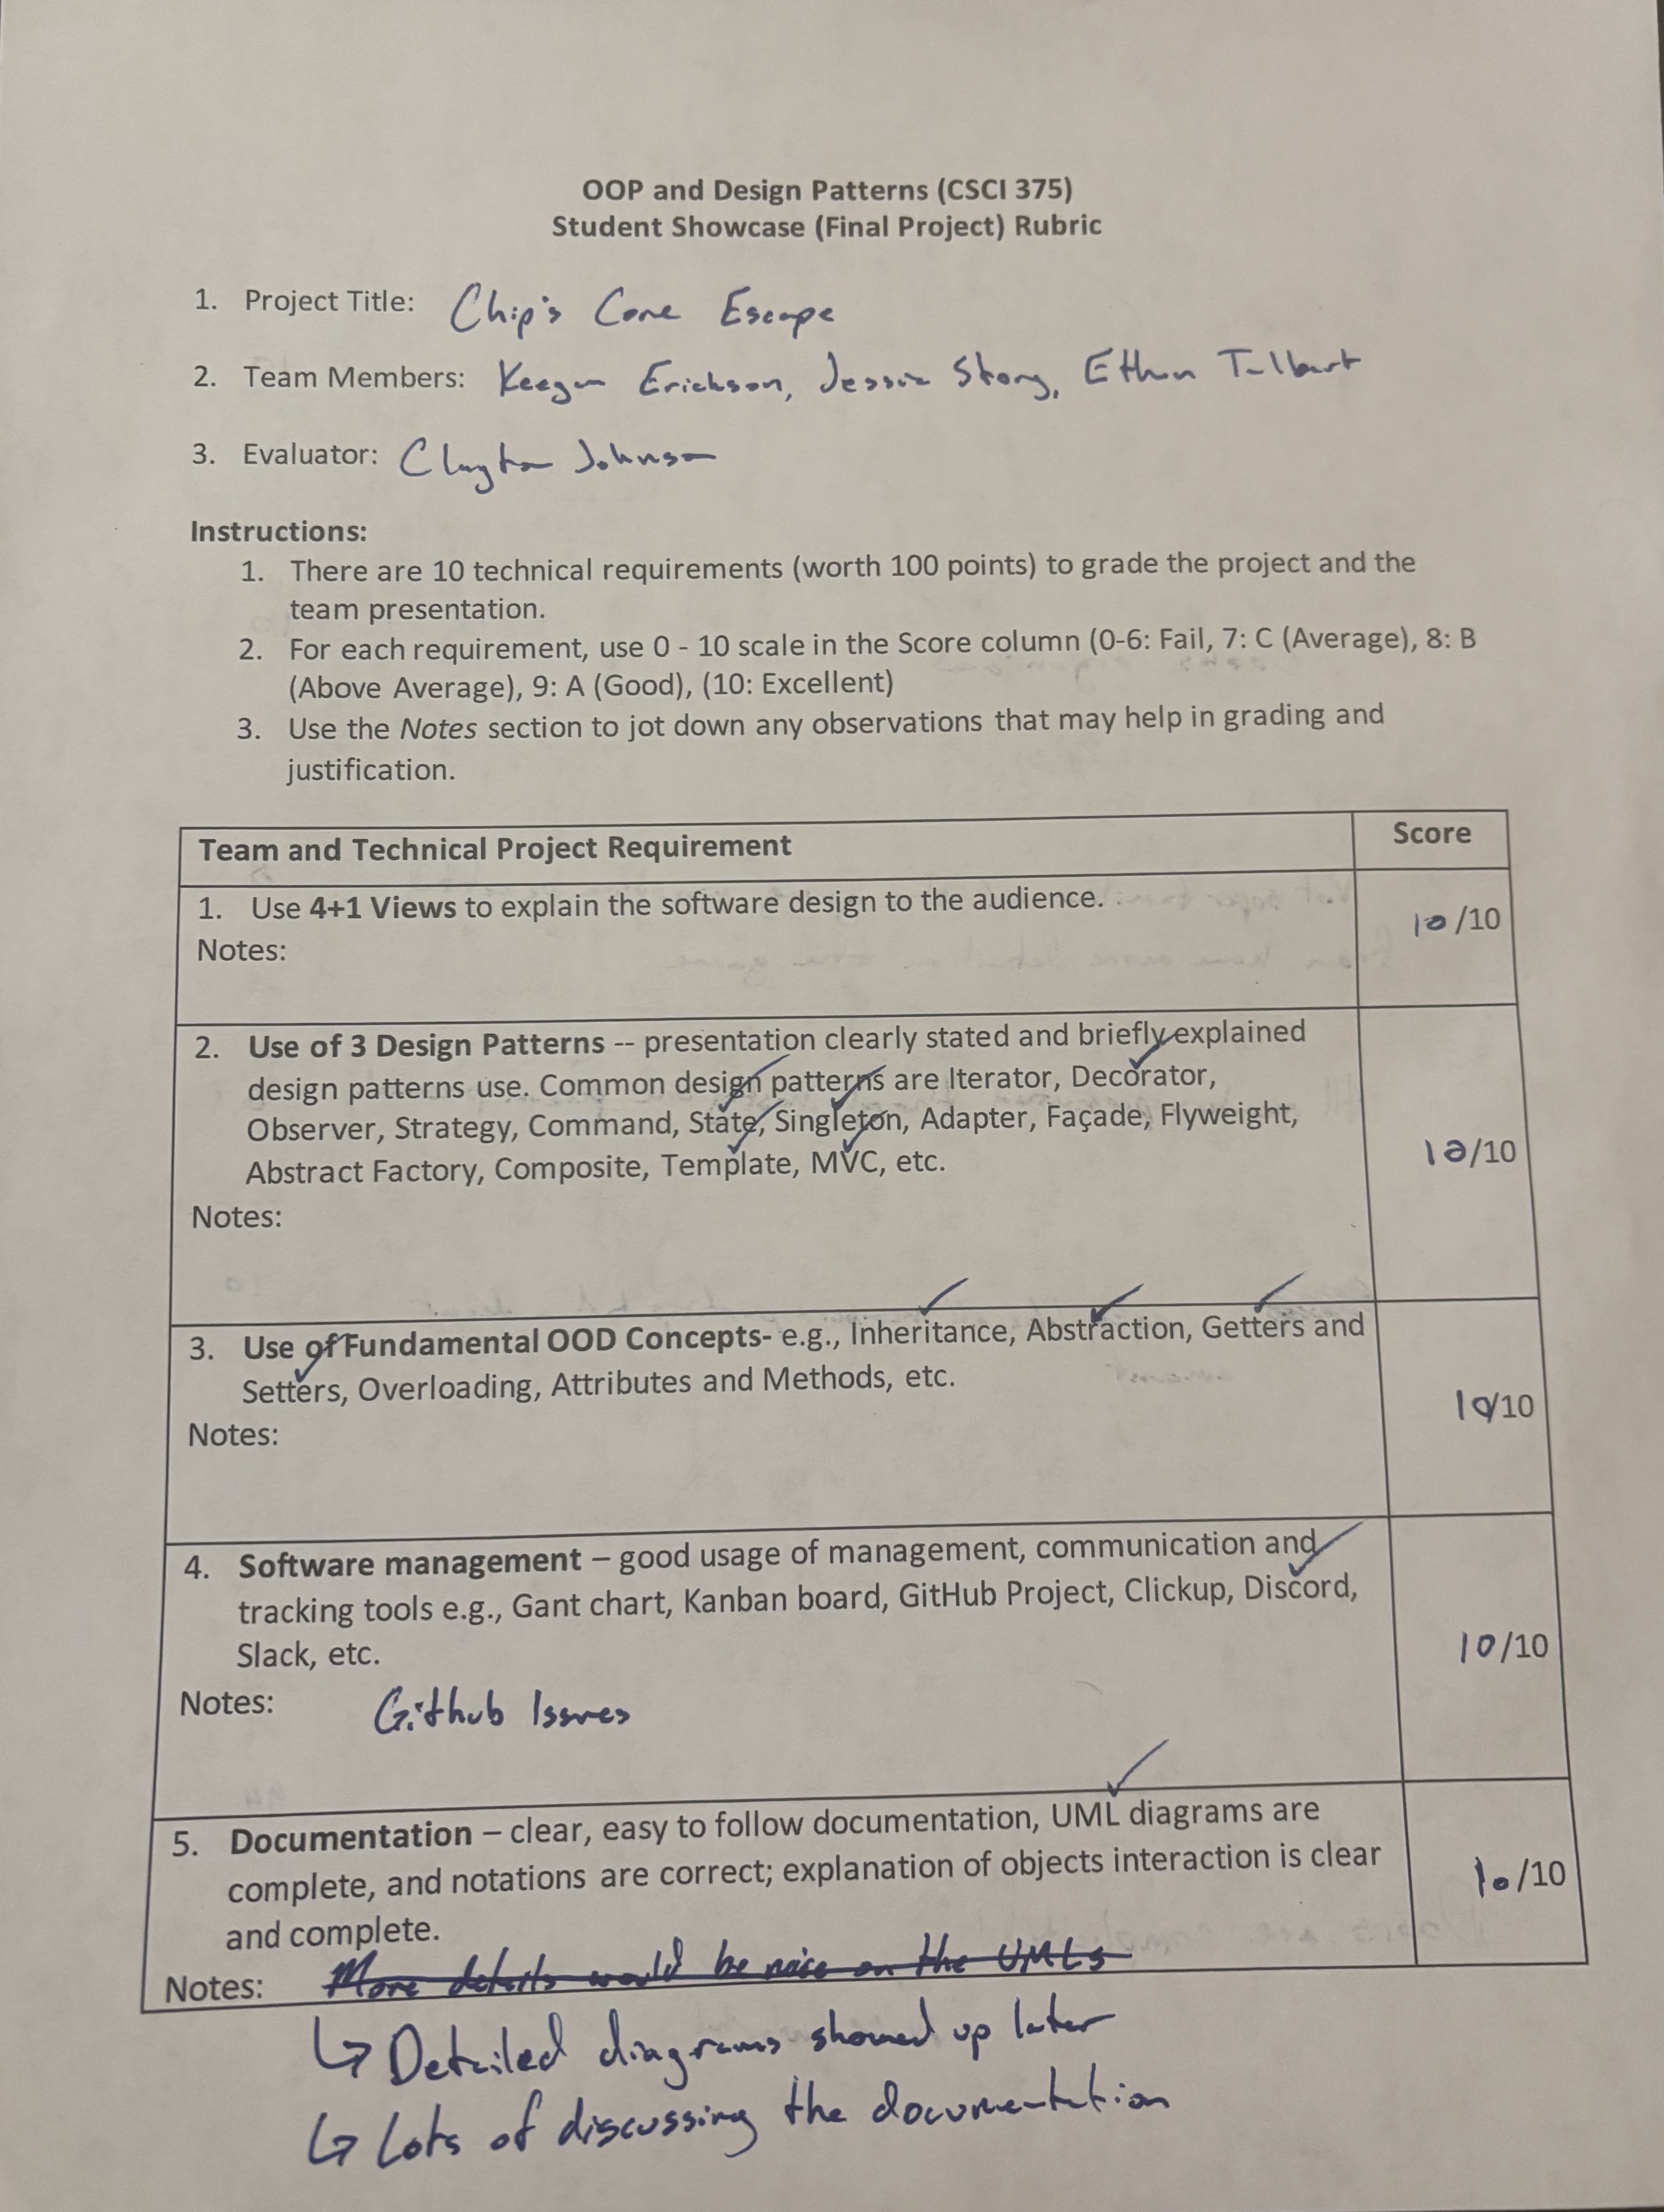 OOP and Design Patterns (CSCI 375)
Student Showcase (Final Project) Rubric
1. Project Title: Chip's Cone Escape
2. Team Members: Keegan Erickson, Jessie Strong, Ethan Talbert
3. Evaluator: Clayton Johnson
Instructions:
1. There are 10 technical requirements (worth 100 points) to grade the project and the
team presentation.
2. For each requirement, use 0 - 10 scale in the Score column (0-6: Fail, 7: C (Average), 8: B
(Above Average), 9: A (Good), (10: Excellent)
3. Use the Notes section to jot down any observations that may help in grading and
justification.
Team and Technical Project Requirement Score
1. Use 4+1 Views to explain the software design to the audience.
Notes:
10/10
2. Use of 3 Design Patterns -- presentation clearly stated and briefly explained
design patterns use. Common design patterns are Iterator, Decorator,
Observer, Strategy, Command, State, Singleton, Adapter, Façade, Flyweight,
Abstract Factory, Composite, Template, MVC, etc.
Notes:
10/10
3. Use of Fundamental OOD Concepts- e.g., Inheritance, Abstraction, Getters and
Setters, Overloading, Attributes and Methods, etc.
Notes:
10/10
4. Software management – good usage of management, communication and
tracking tools e.g., Gant chart, Kanban board, GitHub Project, Clickup, Discord,
Slack, etc.
Notes: Github Issues
10/10
5. Documentation – clear, easy to follow documentation, UML diagrams are
complete, and notations are correct; explanation of objects interaction is clear
and complete.
Notes: More details would be nice on the UMLs
10/10
↳ Detailed diagrams showed up later
↳ Lots of discussing the documentation